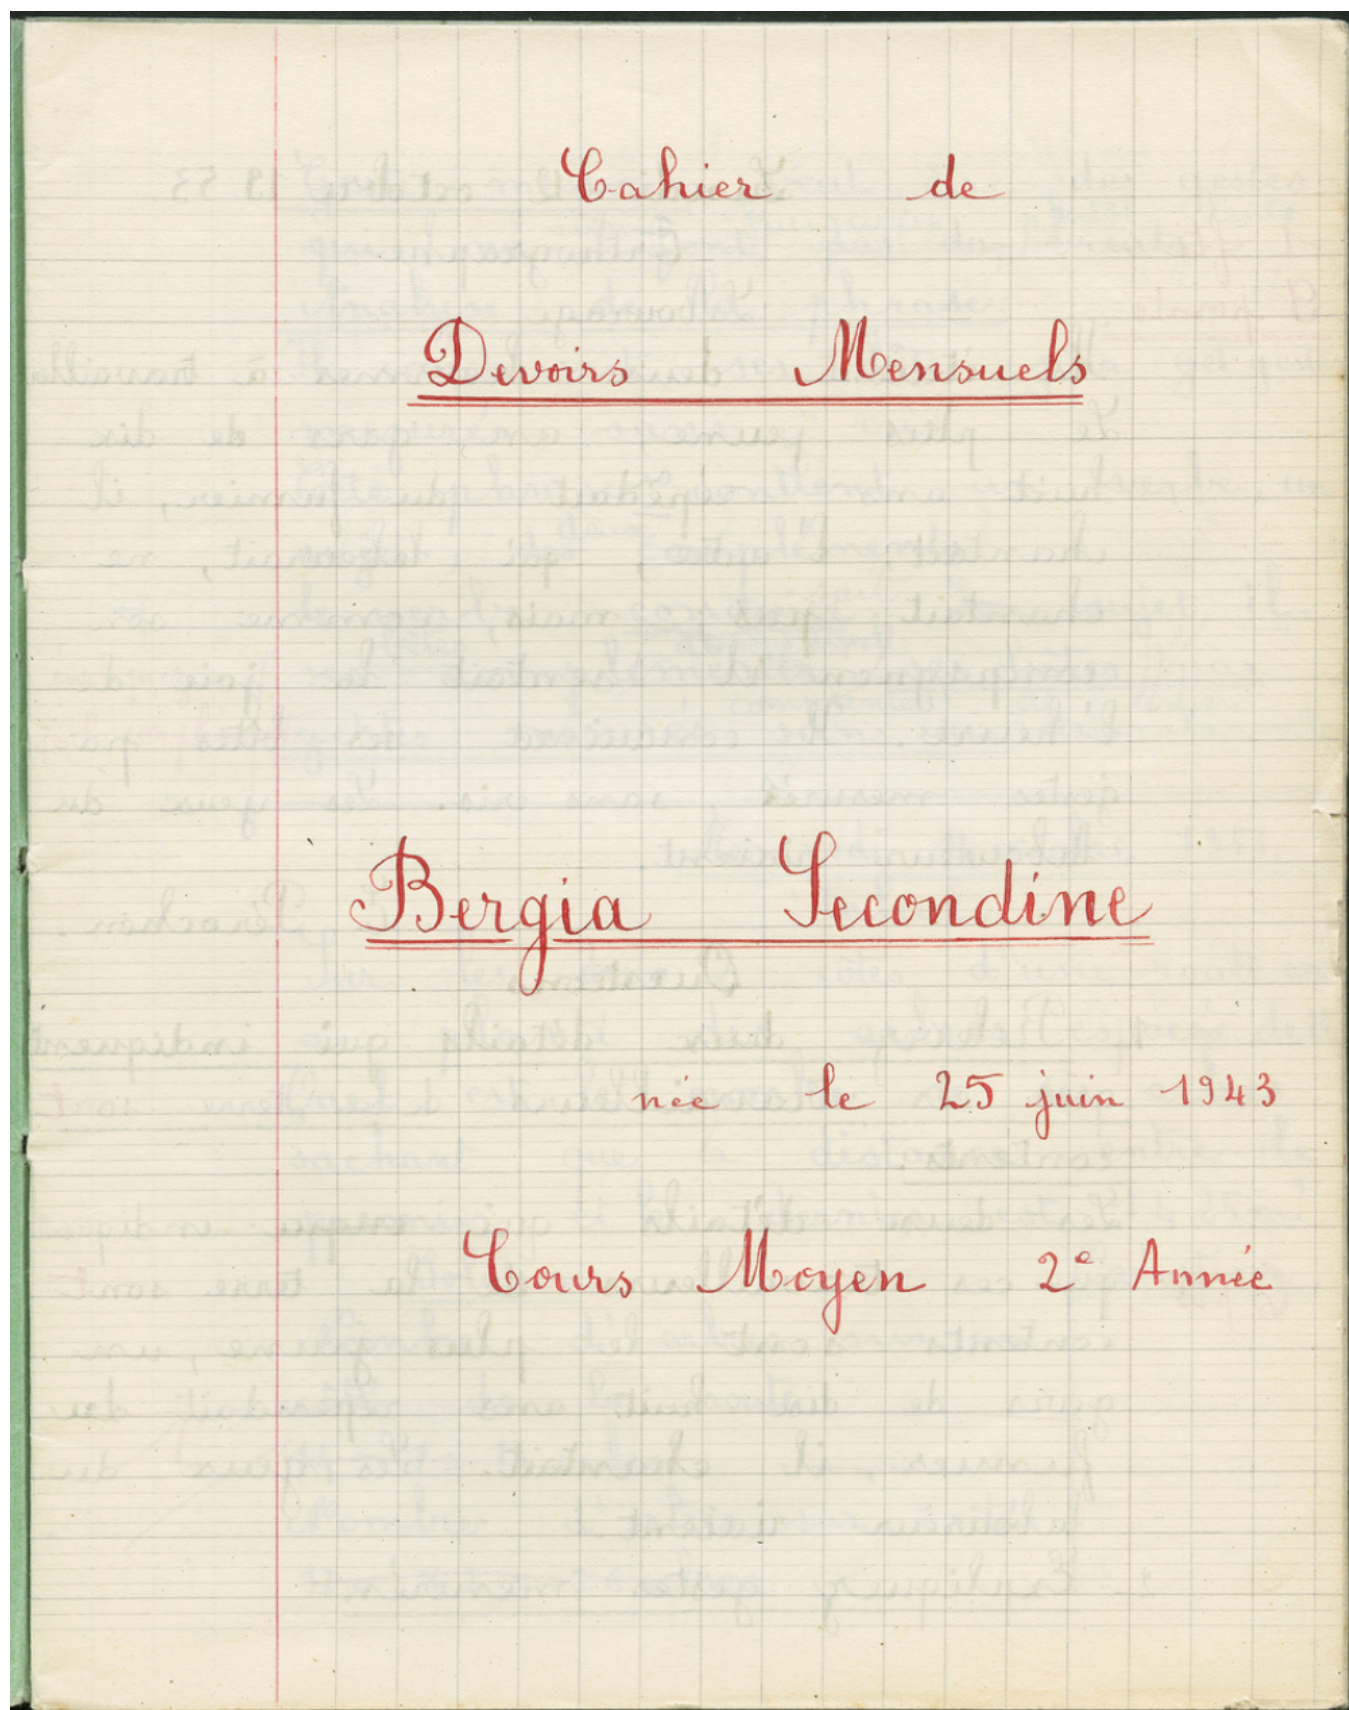 Cahier de
Devoirs Mensuels
Bergia Secondine
née le 25 juin 1943
Cours Moyen 2e Année